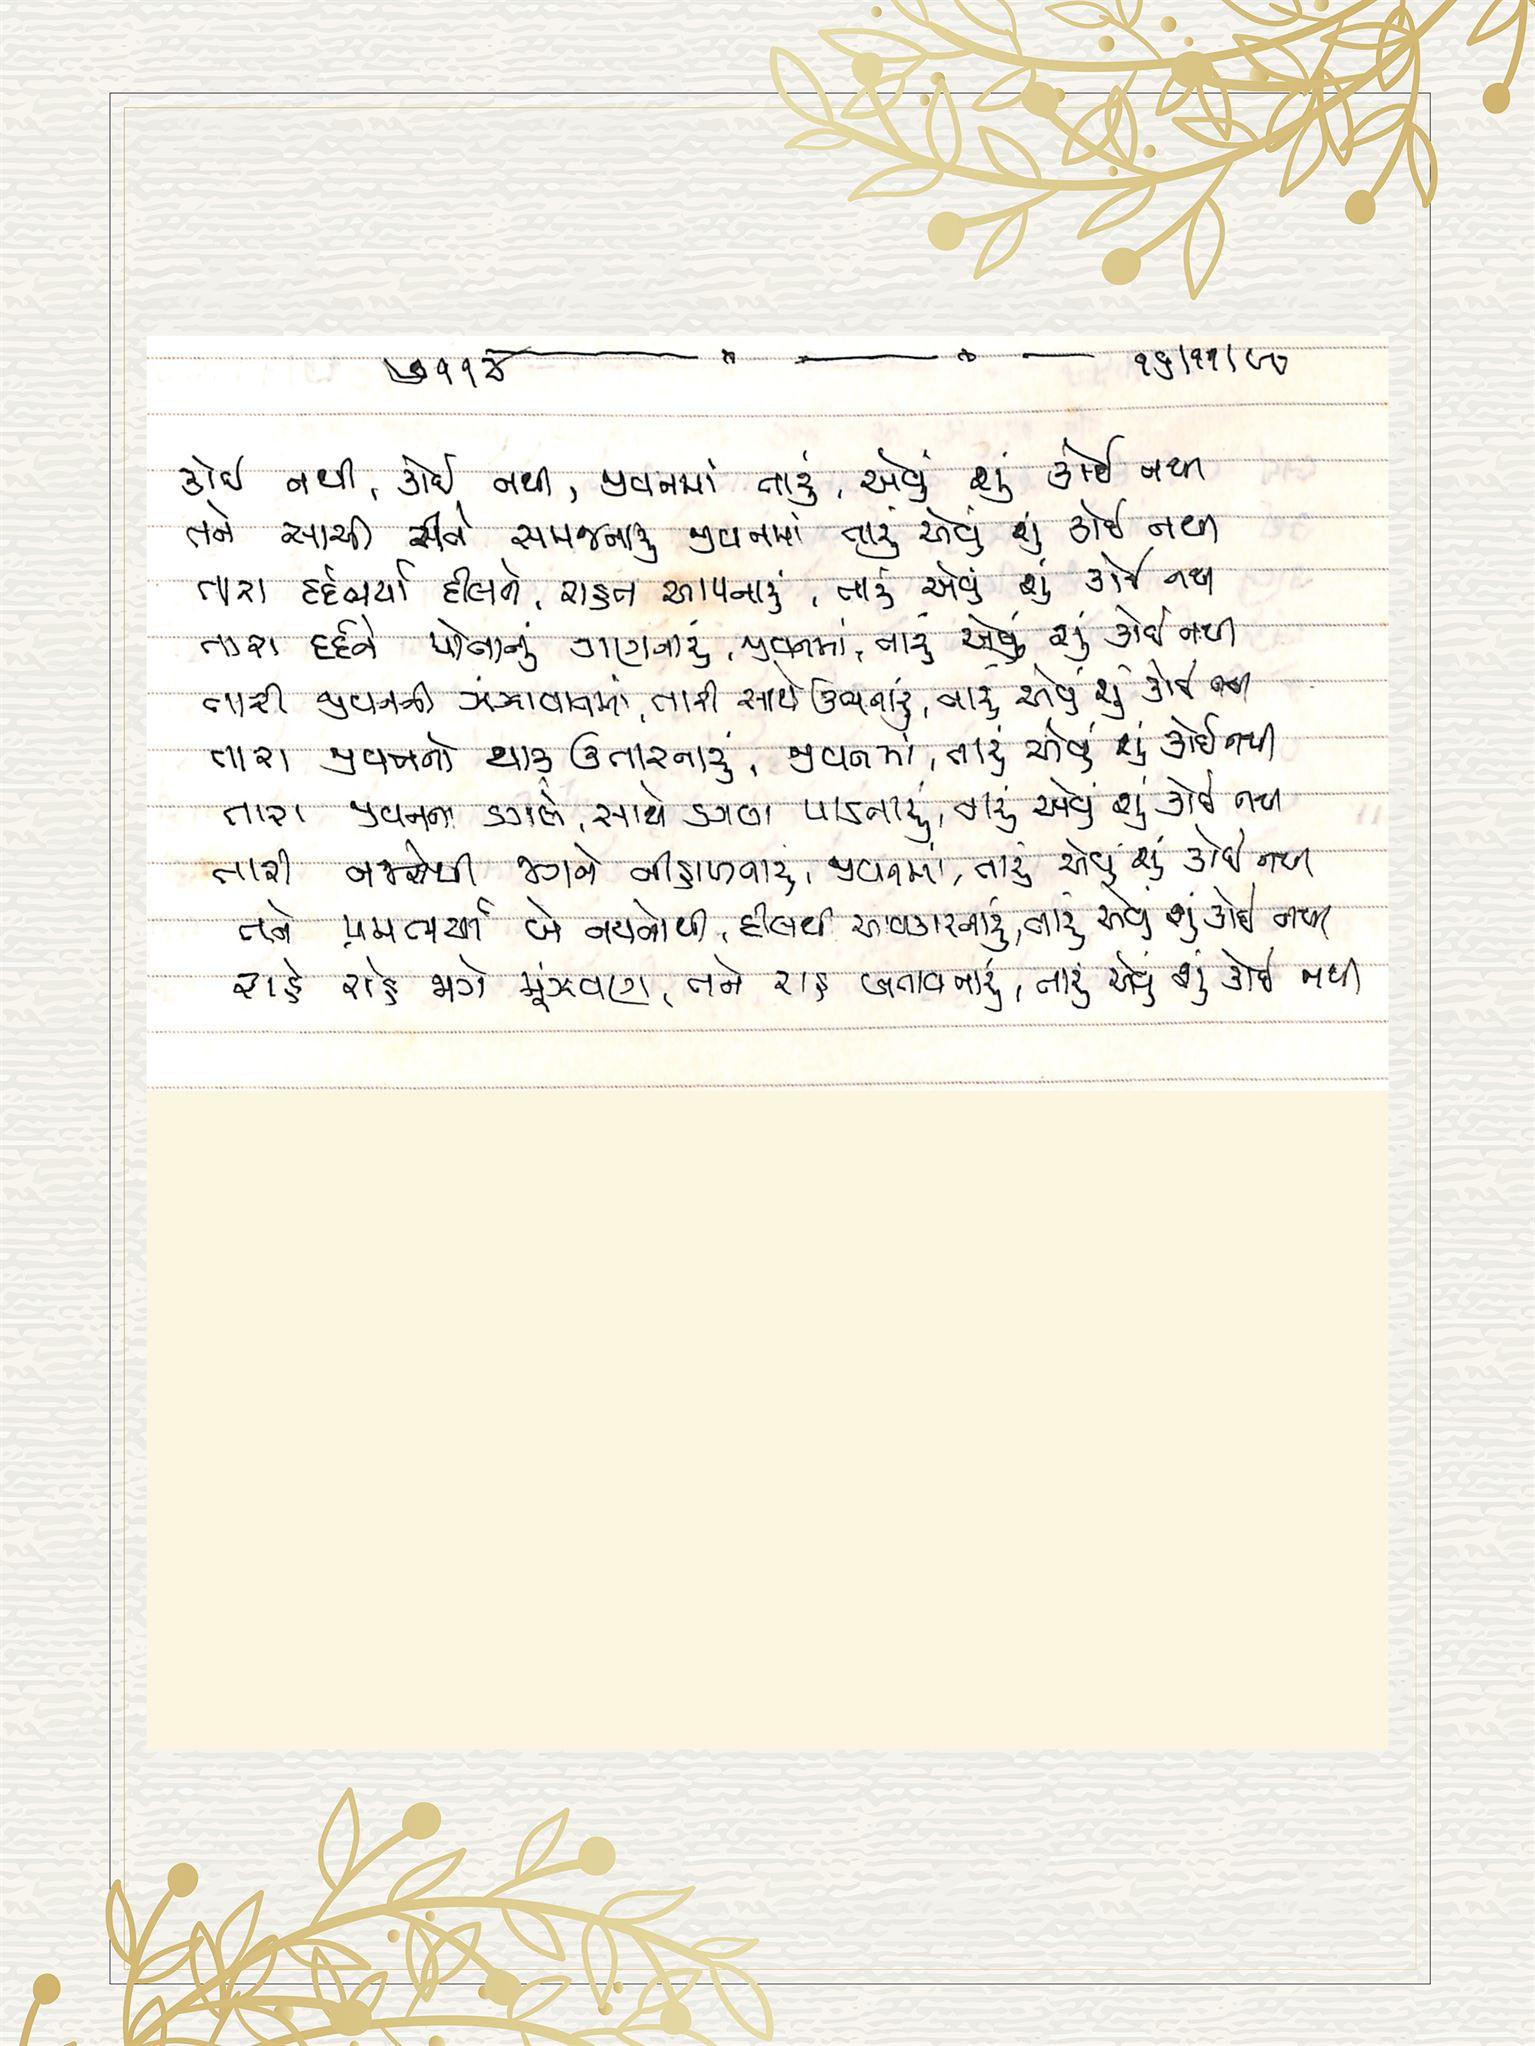 ૭૧૧૪ ૧૬/૧૧/૯૭
કોઈ નથી, કોઈ નથી, જીવનમાં તારું, એવું શું કોઈ નથી
તને સાચી રીતે સમજનારું જીવનમાં તારું એવું શું કોઈ નથી
તારા દર્દભર્યા દીલને, રાહત આપનારું, તારું એવું શું કોઈ નથી
તારા દર્દને પોતાનું ગણનારું, જીવનમાં, તારું એવું શું કોઈ નથી
તારી જીવનની ઝંઝાવાતમાં, તારી સાથે ઉભનારું, તારું એવું શું કોઈ નથી
તારા જીવનનો થાક ઉતારનારું, જીવનમાં, તારું એવું શું કોઈ નથી
તારા જીવનના ડગલે, સાથે ડગલા પાડનારું, તારું એવું શું કોઈ નથી
તારી નજરેથી જગને નીહાળનારું, જીવનમાં, તારું એવું શું કોઈ નથી
તને પ્રેમભર્યા બે નયનોથી, દીલથી આવકારનારું, તારું એવું શું કોઈ નથી
રાહે રાહે જાગે મૂંઝવણ, તને રાહ બતાવનારું, તારું એવું શું કોઈ નથી